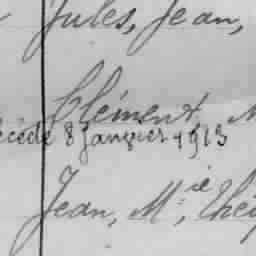 Jules, Jean,
Clément, M
écédé 8 janvier 1913
Jean, M.ie, Thé